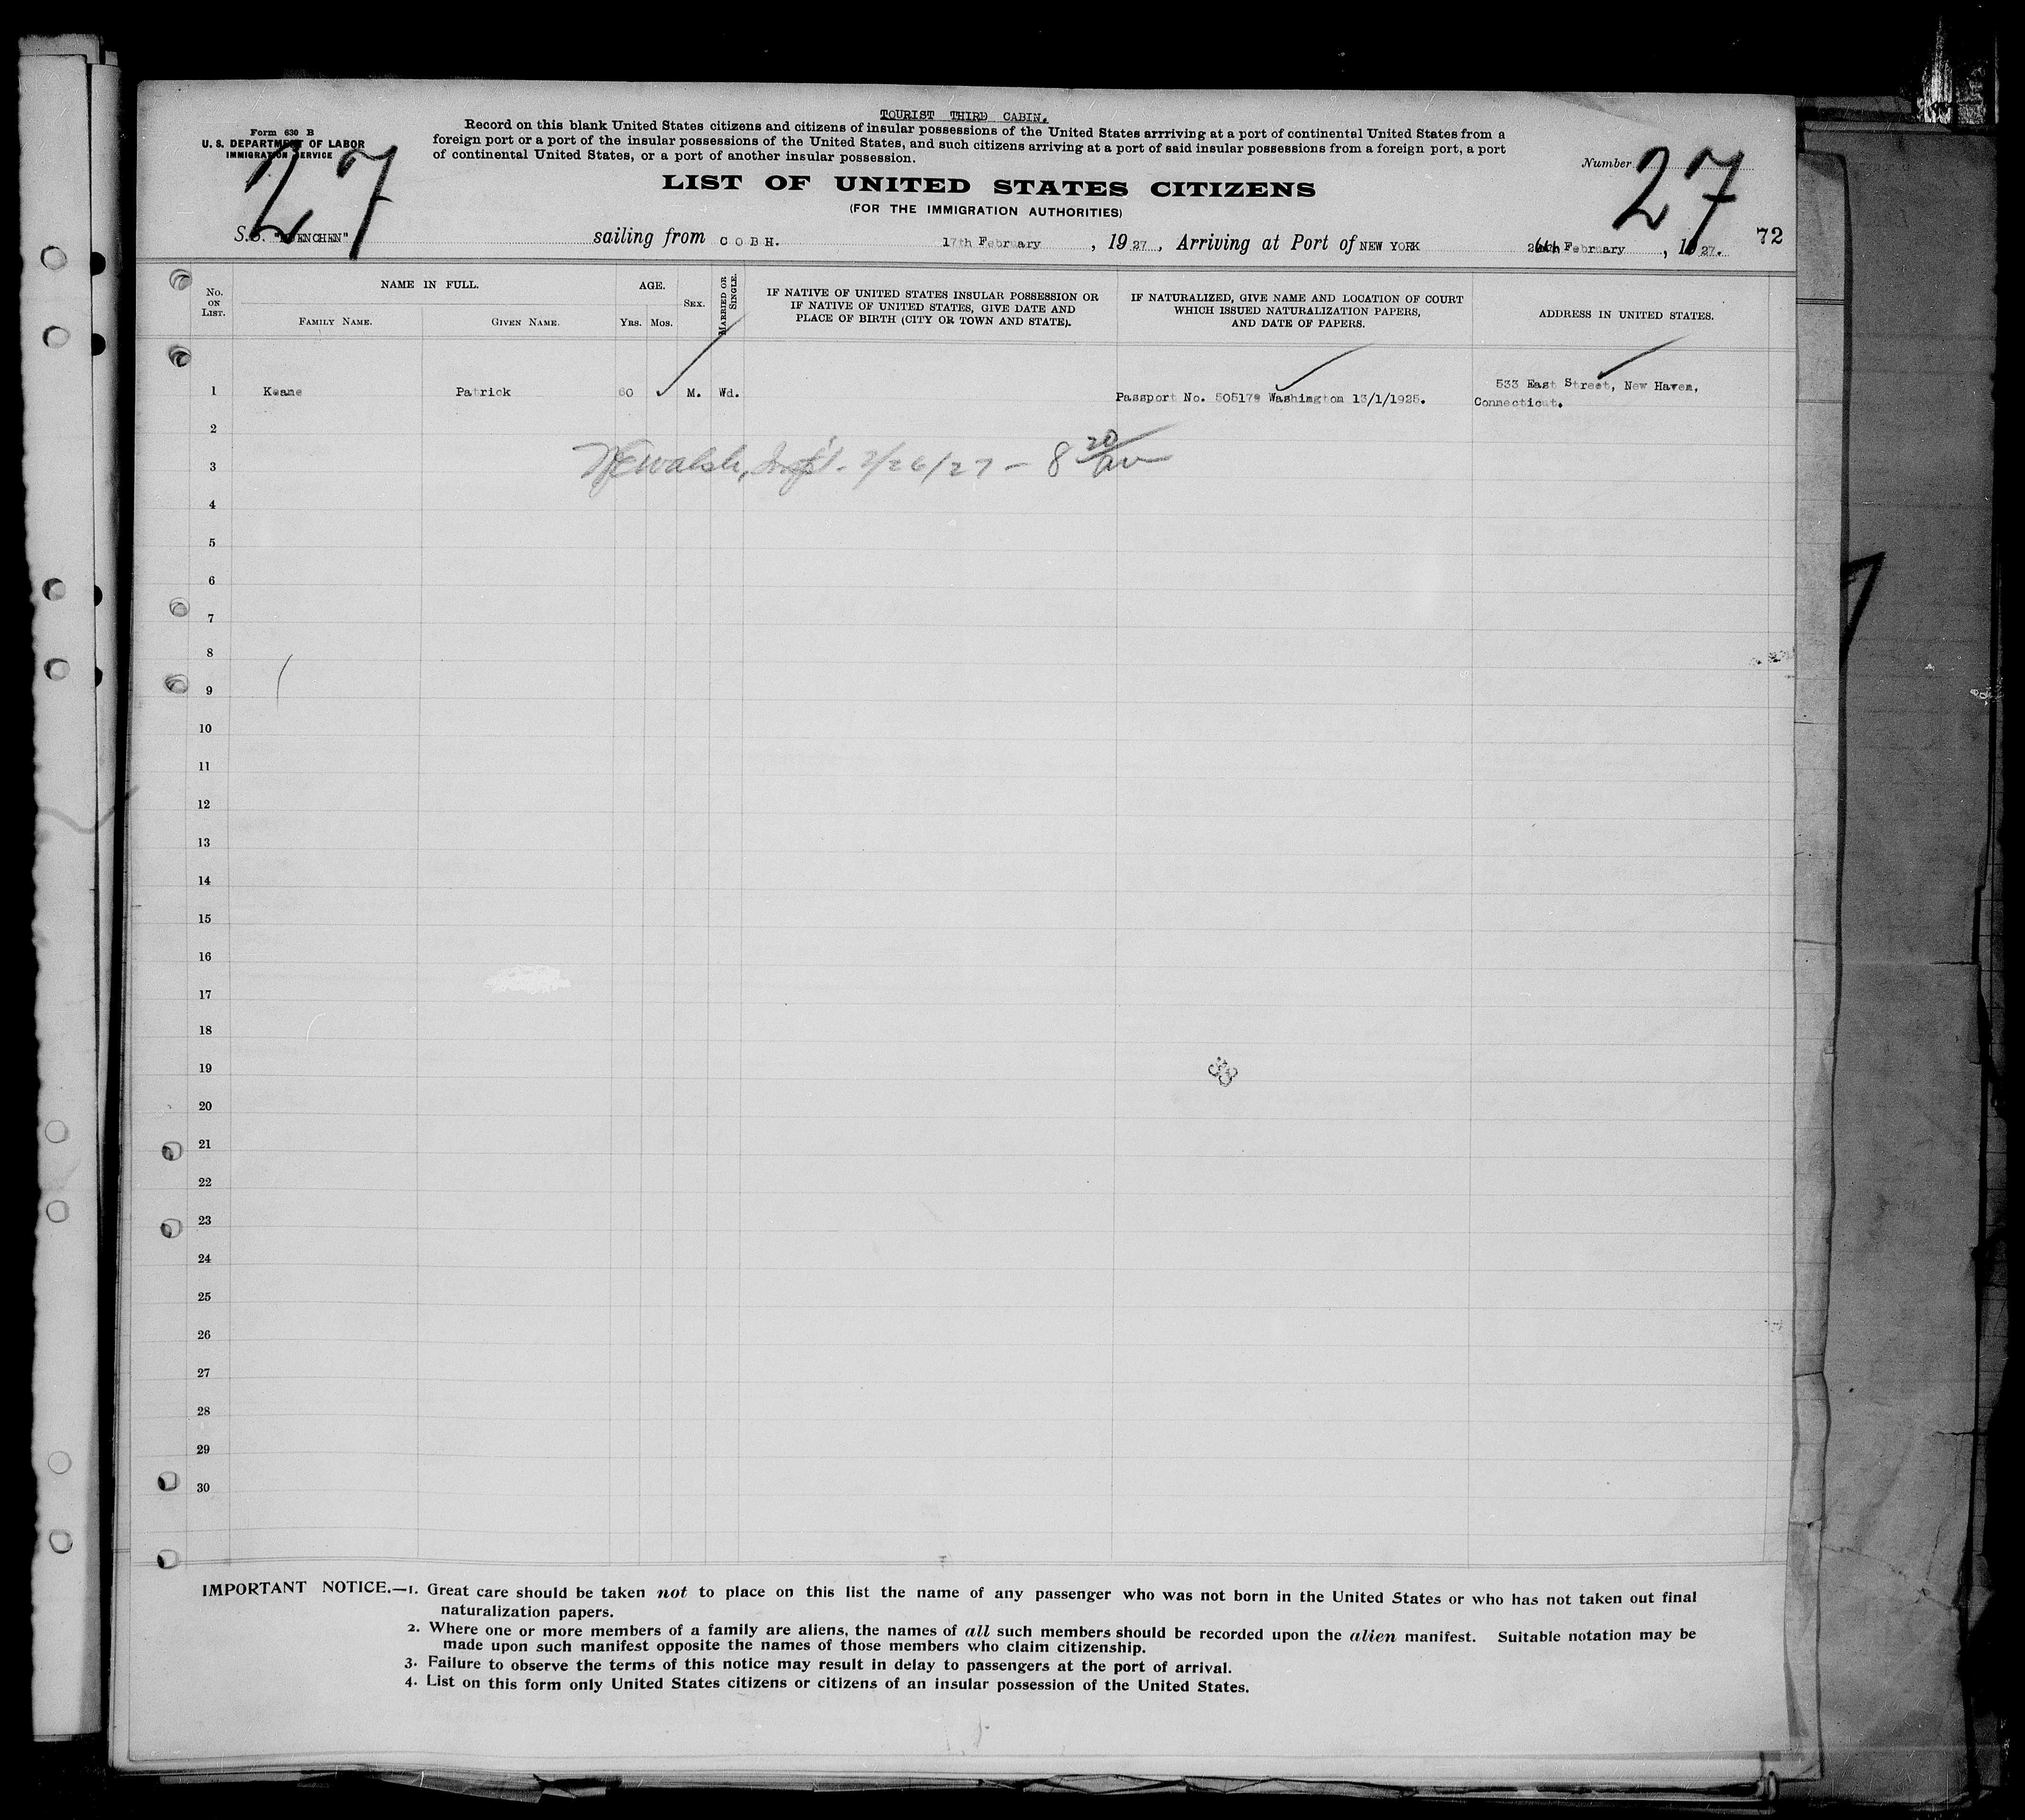 TOURIST THIRD CABIN.
Form 630 B
U. S. DEPARTMENT OF LABOR
IMMIGRATION SERVICE
27
Record on this blank United States citizens and citizens of insular possessions of the United States arrriving at a port of continental United States from a
foreign port or a port of the insular possessions of the United States, and such citizens arriving at a port of said insular possessions from a foreign port, a port
of continental United States, or a port of another insular possession.
Number 27
LIST OF UNITED STATES CITIZENS
(FOR THE IMMIGRATION AUTHORITIES)
S.S. "MUENCHEN" sailing from COBH. 17th February, 1927, Arriving at Port of NEW YORK February, 1927. 72
No. ON LIST.
NAME IN FULL.
FAMILY NAME.
GIVEN NAME.
AGE.
YRS. MOS.
SEX.
MARRIED OR SINGLE.
IF NATIVE OF UNITED STATES INSULAR POSSESSION OR
IF NATIVE OF UNITED STATES, GIVE DATE AND
PLACE OF BIRTH (CITY OR TOWN AND STATE).
IF NATURALIZED, GIVE NAME AND LOCATION OF COURT
WHICH ISSUED NATURALIZATION PAPERS,
AND DATE OF PAPERS.
ADDRESS IN UNITED STATES.
1 Keane Patrick 60 M. Wd. Passport No. Washington 13/1/1925. 533 East Street, New Haven,
Connecticut.
2
3 Walsh, 2/26/27 - 8 20
4
5
6
7
8
9
10
11
12
13
14
15
16
17
18
19
20
21
22
23
24
25
26
27
28
29
30
IMPORTANT NOTICE.—1. Great care should be taken not to place on this list the name of any passenger who was not born in the United States or who has not taken out final
naturalization papers.
2. Where one or more members of a family are aliens, the names of all such members should be recorded upon the alien manifest. Suitable notation may be
made upon such manifest opposite the names of those members who claim citizenship.
3. Failure to observe the terms of this notice may result in delay to passengers at the port of arrival.
4. List on this form only United States citizens or citizens of an insular possession of the United States.